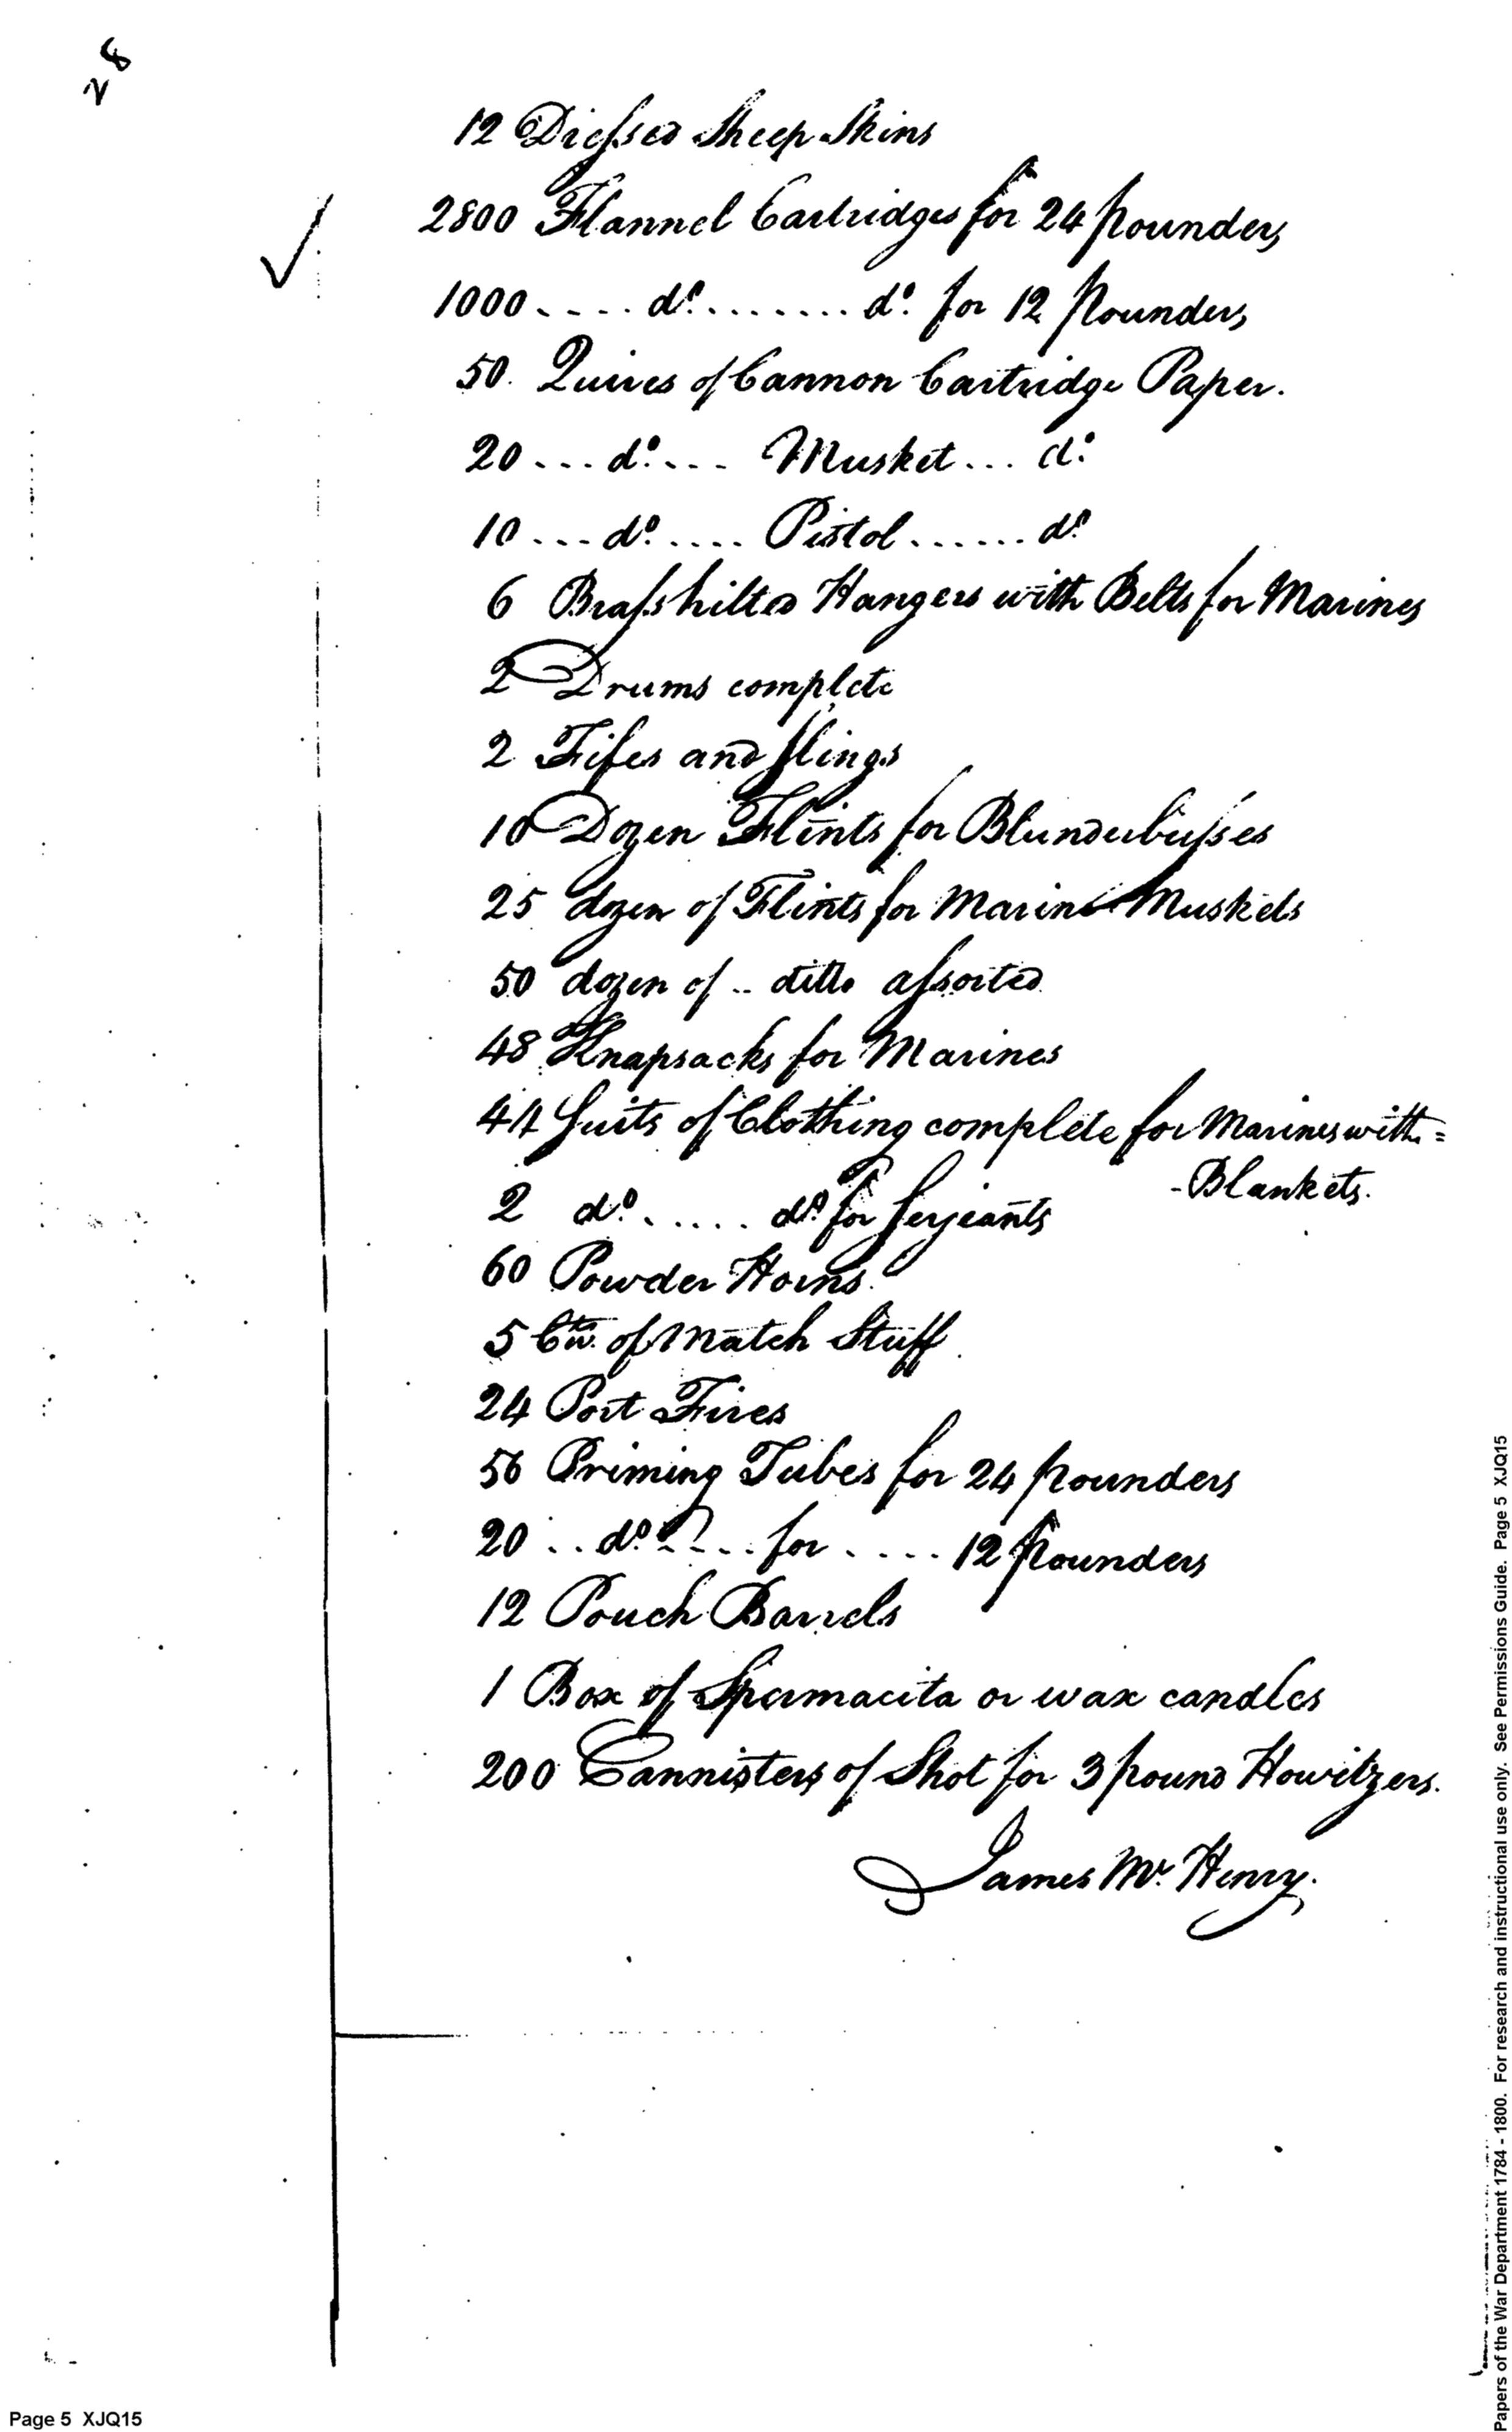 28
12 Dressed Sheep Skins
2800 Flannel Cartridges for 24 pounders
1000 .... do. ........ do. for 12 pounders
50. Quires of Cannon Cartridge Paper.
20 ... do. ... Musket ... do.
10 ... do. .... Pistol ...... do.
6 Brass hilted Hangers with Belts for Marines
2 Drums complete
2 Fifes and slings
10 Dozen Flints for Blunderbusses
25 dozen of Flints for Marine Muskets
50 dozen of .. ditto assorted
48 Knapsacks for Marines
44 Suits of Clothing complete for Marines with =
- Blankets.
2 do. ..... do. for Serjeants
60 Powder Horns.
5 Ctw. of Match Stuff.
24 Port Fires
56 Priming Tubes for 24 pounders
20 .. do. .... for .... 12 pounders
12 Pouch Barrels
1 Box of Spermacita or wax candles
200 Cannisters of Shot for 3 pound Howitzers.
James McHenry.
Page 5 XJQ15
Papers of the War Department 1784 - 1800. For research and instructional use only. See Permissions Guide. Page 5 XJQ15